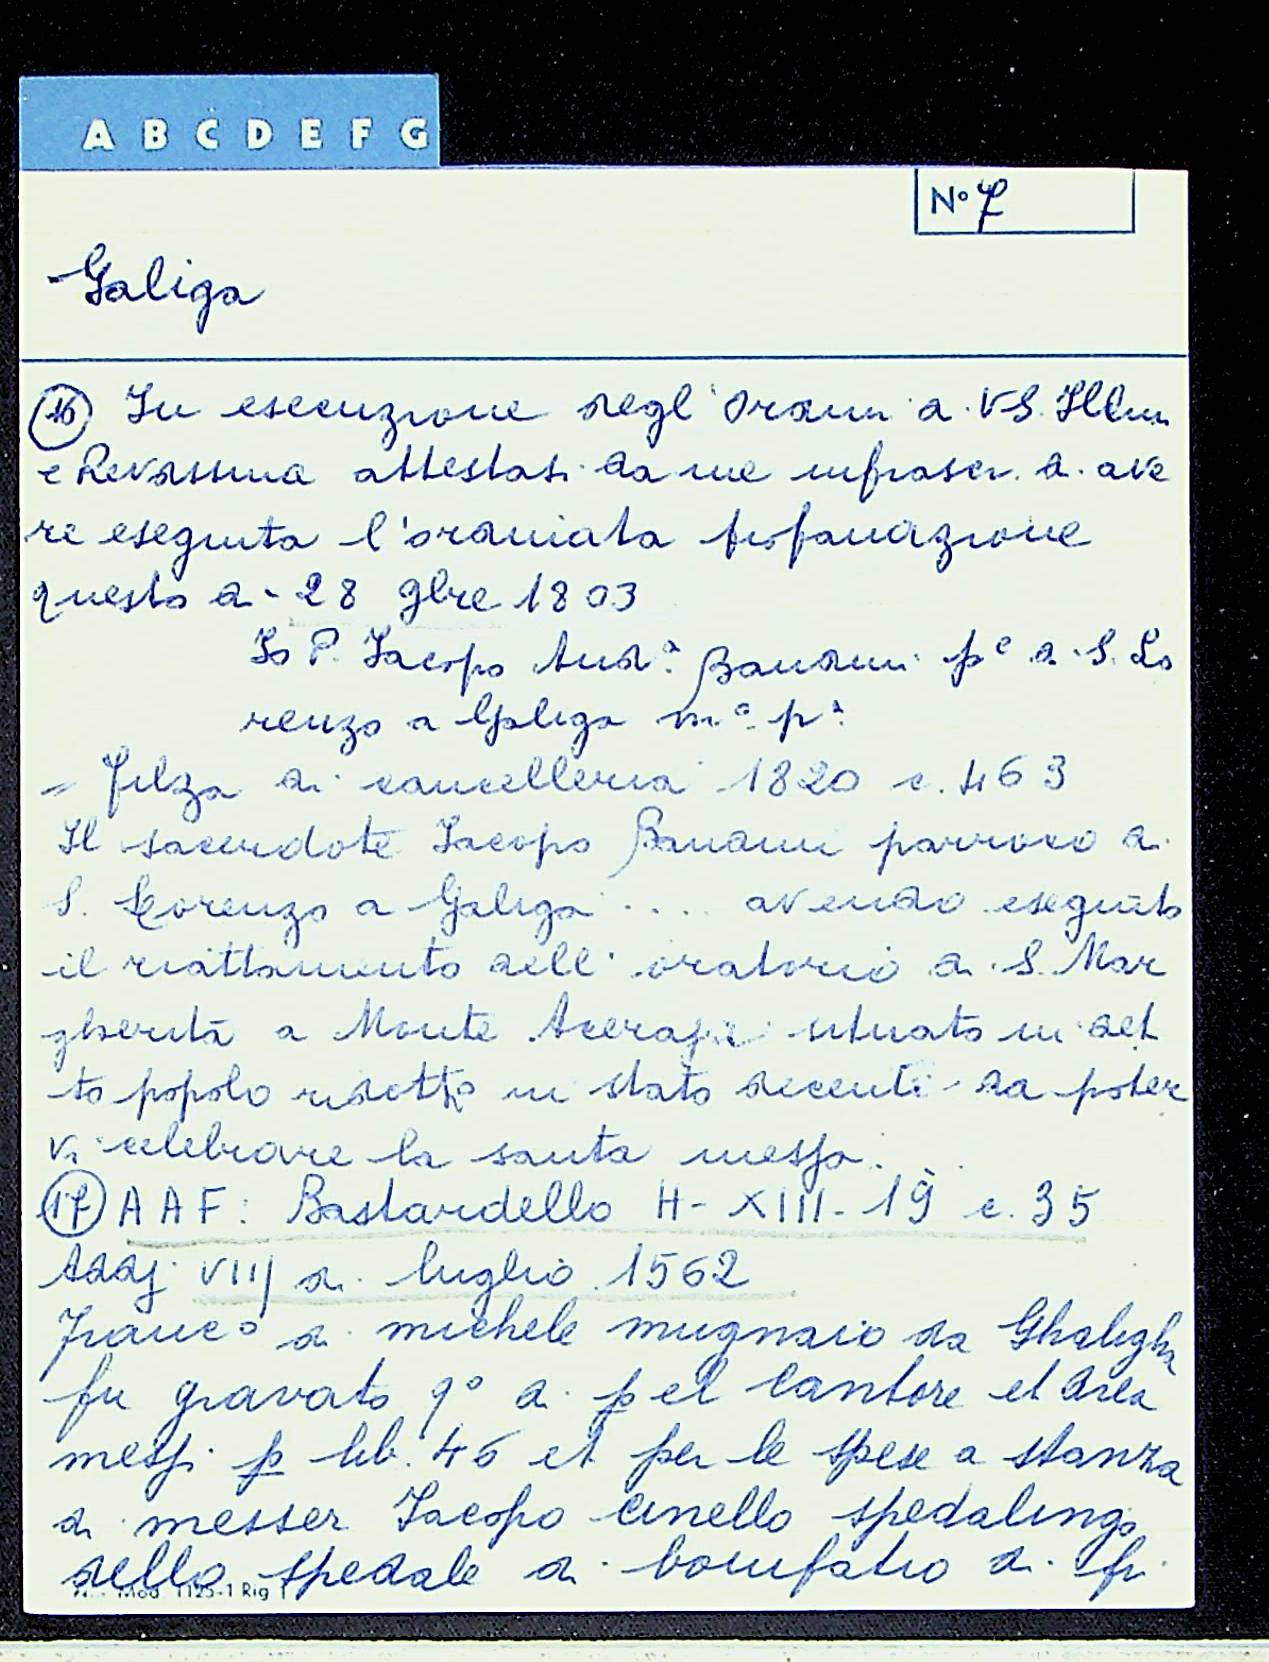 A B C D E F G
N° 7
Galiga
(16) In esecuzione degl'ordini di VS. Illm
e Revdssima attestasi da me infrascr. di ave
re eseguita l'ordinata profanazione
questo dì 28 9bre 1803
Io P. Iacopo And.ª Bandini p.e di S. Lo
renzo a Galiga m.ª p.ª
= Filza di cancelleria 1820 c. 463
Il sacerdote Iacopo Bandini parroco di
S. Lorenzo a Galiga .... avendo eseguito
il riattamento dell'oratorio di S. Mar
gherita a Monte situato in det
to popolo ridotto in stato decente da poter
vi celebrare la santa messa.
(17) AAF: Bastardello H-XIII-19 c. 35
Addj VIIJ di luglio 1562
Franc° di michele mugnaio da Ghaligha
fu gravato q° dì p el Cantore et
messi p lib. 46 et per le spese a stanza
di messer Iacopo spedalingo
dello spedale di bonifatio di fi
Mod 1125-1 Rig 1